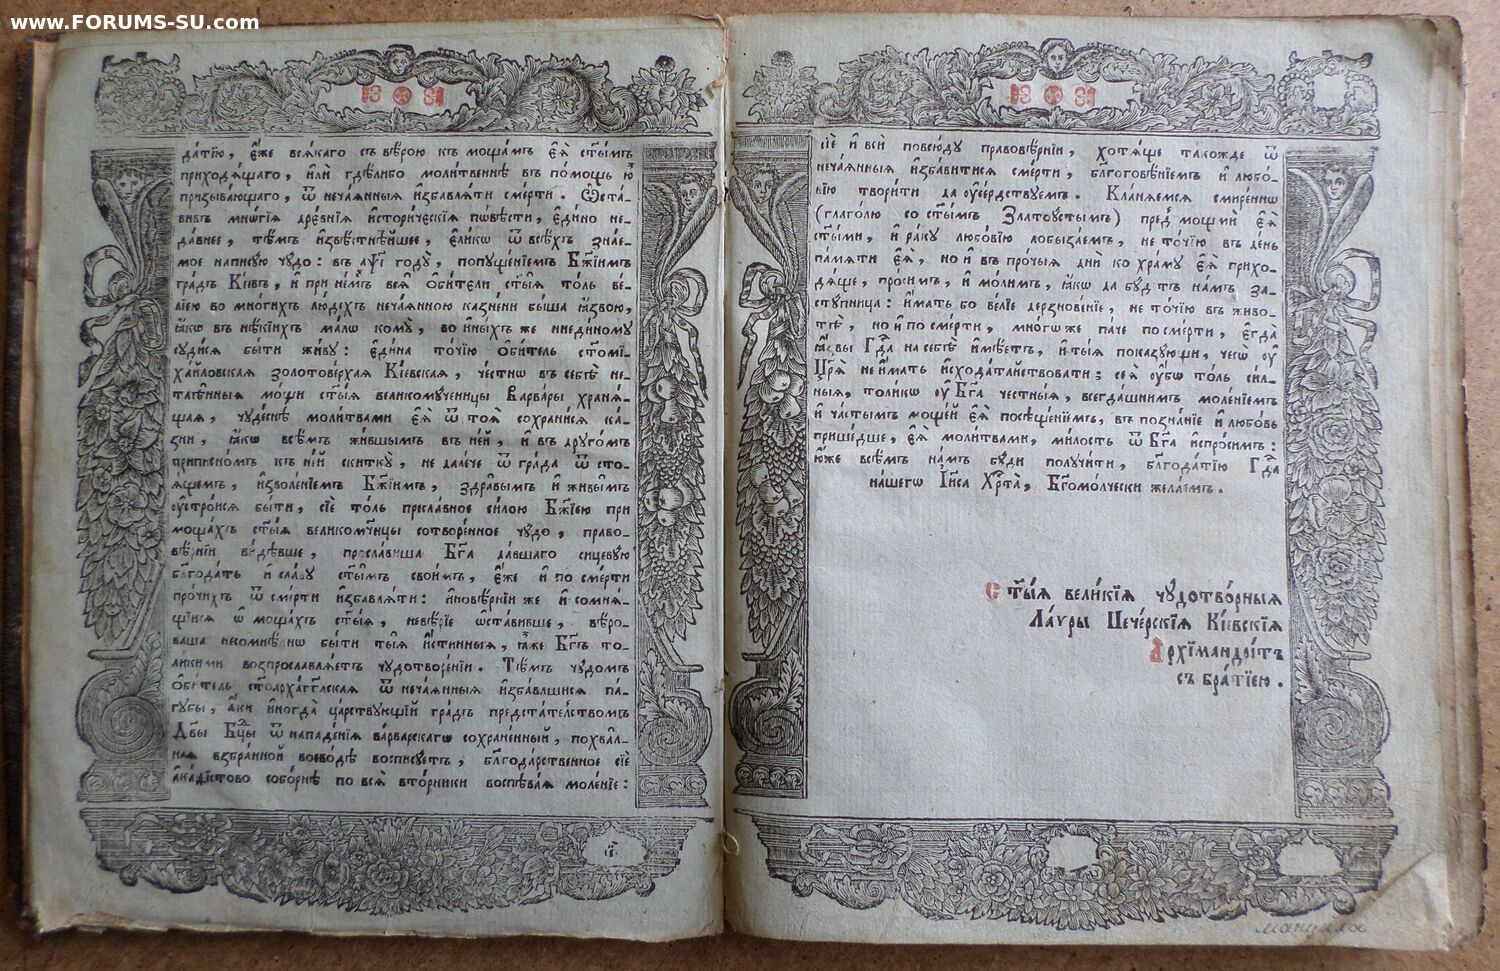 www.FORUMS-SU.com
да́тїю, є҆́же вся́каго съ вѣ́рою къ моща́мъ є҆ѧ̀ ст҃ы̑мъ
приходѧ́щаго, и҆лѝ гдѣ́либо моли́твеннѣ въ по́мощь ю҆̀
призыва́ющаго, ѿ неча́ѧнныѧ и҆збавлѧ́ти сме́рти. Ѡ҆ста́-
вивъ мнѡ́гїѧ дре́внїѧ и҆стори́ческїѧ по́вѣсти, є҆ди́но не-
да́внее, тѣ́мъ и҆звѣ́стнѣйшее, є҆ли́кѡ ѿ всѣ́хъ зна́е-
мое напишꙋ̀ чꙋ́до: въ ҂аѱ҃і го́дꙋ, попꙋще́нїемъ Бж҃їимъ
гра́дъ Кі́евъ, и҆ при не́мъ всѧ̑ Ѻ҆би́тели ст҃ы́ѧ то́ль ве́-
лїею во мно́гихъ лю́дехъ неча́ѧнною ка́знени бы́ша ꙗ҆́звою,
ꙗ҆́кѡ въ нѣ́кїихъ ма́лѡ комꙋ̀, во и҆ны́хъ же ниеди́номꙋ
сꙋди́сѧ бы́ти жи́вꙋ: є҆ди́на то́чїю Ѻ҆би́тель ст҃омі-
ха́йловская золотове́рхая Кі́евская, че́стнѡ въ себѣ̀ не-
тлѣ́нныѧ мо́щи ст҃ы́ѧ великомꙋ́ченицы Варва́ры хранѧ́-
щая, чꙋде́снѣ моли́твами є҆ѧ̀ ѿ тоѧ̀ сохрани́сѧ ка́-
зни, ꙗ҆́кѡ всѣ́мъ жи́вшымъ въ не́й, и҆ въ дрꙋго́мъ
припи́сномъ къ не́й скиткꙋ̀, не дале́че ѿ гра́да ѿ сто-
ѧ́щемъ, и҆зволе́нїемъ Бж҃їимъ, здра́вымъ и҆ живы̑мъ
ꙋ҆стро́исѧ бы́ти, сїѐ то́ль пресла́вное си́лою Бж҃їею при
моща́хъ ст҃ы́ѧ великомч҃нцы сотворе́нное чꙋ́до, право-
вѣ́рнїи ви́дѣвше, просла́виша Бг҃а да́вшаго сицевꙋ́ю
благода́ть и҆ сла́вꙋ ст҃ы̑мъ свои̑мъ, є҆́же и҆ по сме́рти
про́чихъ ѿ сме́рти и҆збавлѧ́ти: и҆новѣ́рнїи же и҆ сомнѧ́-
щїисѧ ѡ҆ моща́хъ ст҃ы́ѧ, невѣ́рїе ѡ҆ста́вивше, вѣ́ро-
ваша несомнѣ́ннѡ бы́ти ты́ѧ и҆́стинныѧ, ꙗ҆̀же Бг҃ъ то-
ли́кими возпрославлѧ́етъ чꙋдотворе́нїи. Тѣ́мъ чꙋ́домъ
Ѻ҆би́тель ст҃оарха́гг҃лская ѿ неча́ѧнныѧ и҆зба́влшисѧ па́-
гꙋбы, а҆́ки и҆ногда̀ ца́рствꙋющїй гра́дъ предста́телствомъ
Дв҃ы Бц҃ы ѿ нападе́нїѧ ва́рварскагѡ сохране́нный, похва́л-
ная взбра́нной воево́дѣ воспи́сꙋетъ, благода́рственное сїѐ
а҆ка́ѳїстово собо́рнѣ по всѧ̑ вто́рники воспѣва́ѧ моле́нїе:
і҃.
сїѐ и҆ всѝ повсю́дꙋ правовѣ́рнїи, хотѧ́ще тако́жде ѿ
неча́ѧнныѧ и҆зба́витисѧ сме́рти, бл҃гоговѣ́нїемъ и҆ любо́-
вїю твори́ти да ᲂу҆се́рдствꙋемъ. Кла́нѧемсѧ смире́ннѡ
(глаго́лю со ст҃ы̑мъ Златоꙋ́стымъ) пред̾ мощмѝ є҆ѧ̀
ст҃ы́ми, и҆ ра́кꙋ любо́вїю лобыза́емъ, не то́чїю въ де́нь
па́мѧти є҆ѧ̀, но и҆ въ про́чыѧ дни̑ ко хра́мꙋ є҆ѧ̀ прихо-
дѧ́ще, про́симъ, и҆ мо́лимъ, ꙗ҆́кѡ да бꙋ́детъ на́мъ за-
стꙋ́пница: и҆́мать бо ве́лїе дерзнове́нїе, не то́чїю въ живо-
тѣ̀, но и҆ по сме́рти, мно́гѡ же па́че по сме́рти, є҆гда̀
ꙗ҆́звы Гд҃а на себѣ̀ и҆мѣ́етъ, и҆ ты́ѧ показꙋ́ющи, чесѡ̀ ᲂу҆
Цр҃ѧ̀ не и҆́мать и҆схода́тайствовати; сеѧ̀ ᲂу҆̀бѡ то́ль си́л-
ныѧ, толи́кѡ ᲂу҆ Бг҃а че́стныѧ, всегда́шнимъ моле́нїемъ
и҆ ча́стымъ моще́й є҆ѧ̀ посѣще́нїемъ, въ позна́нїе и҆ любо́вь
прише́дше, є҆ѧ̀ моли́твами, ми́лость ѿ Бг҃а и҆спро́симъ:
ю҆́же всѣ́мъ на́мъ бꙋ́ди полꙋчи́ти, благода́тїю Гд҃а
на́шегѡ І҆и҃са Хр҃та̀, Бг҃омо́лчески жела́емъ.
Ст҃ы́ѧ вели́кїѧ чꙋдотво́рныѧ
Ла́ѵры Пече́рскїѧ Кі́евскїѧ
А҆рхїмандри́тъ
съ бра́тїею.